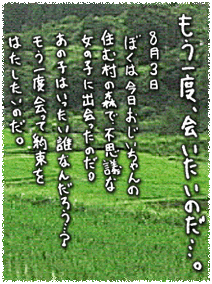 もう一度、会いたいのだ…。
８月３日
ぼくは今日おじいちゃんの
住む村の森で不思議な
女の子に出会ったのだ。
あの子はいったい誰なんだろう…？
もう一度会って約束を
はたしたいのだ。